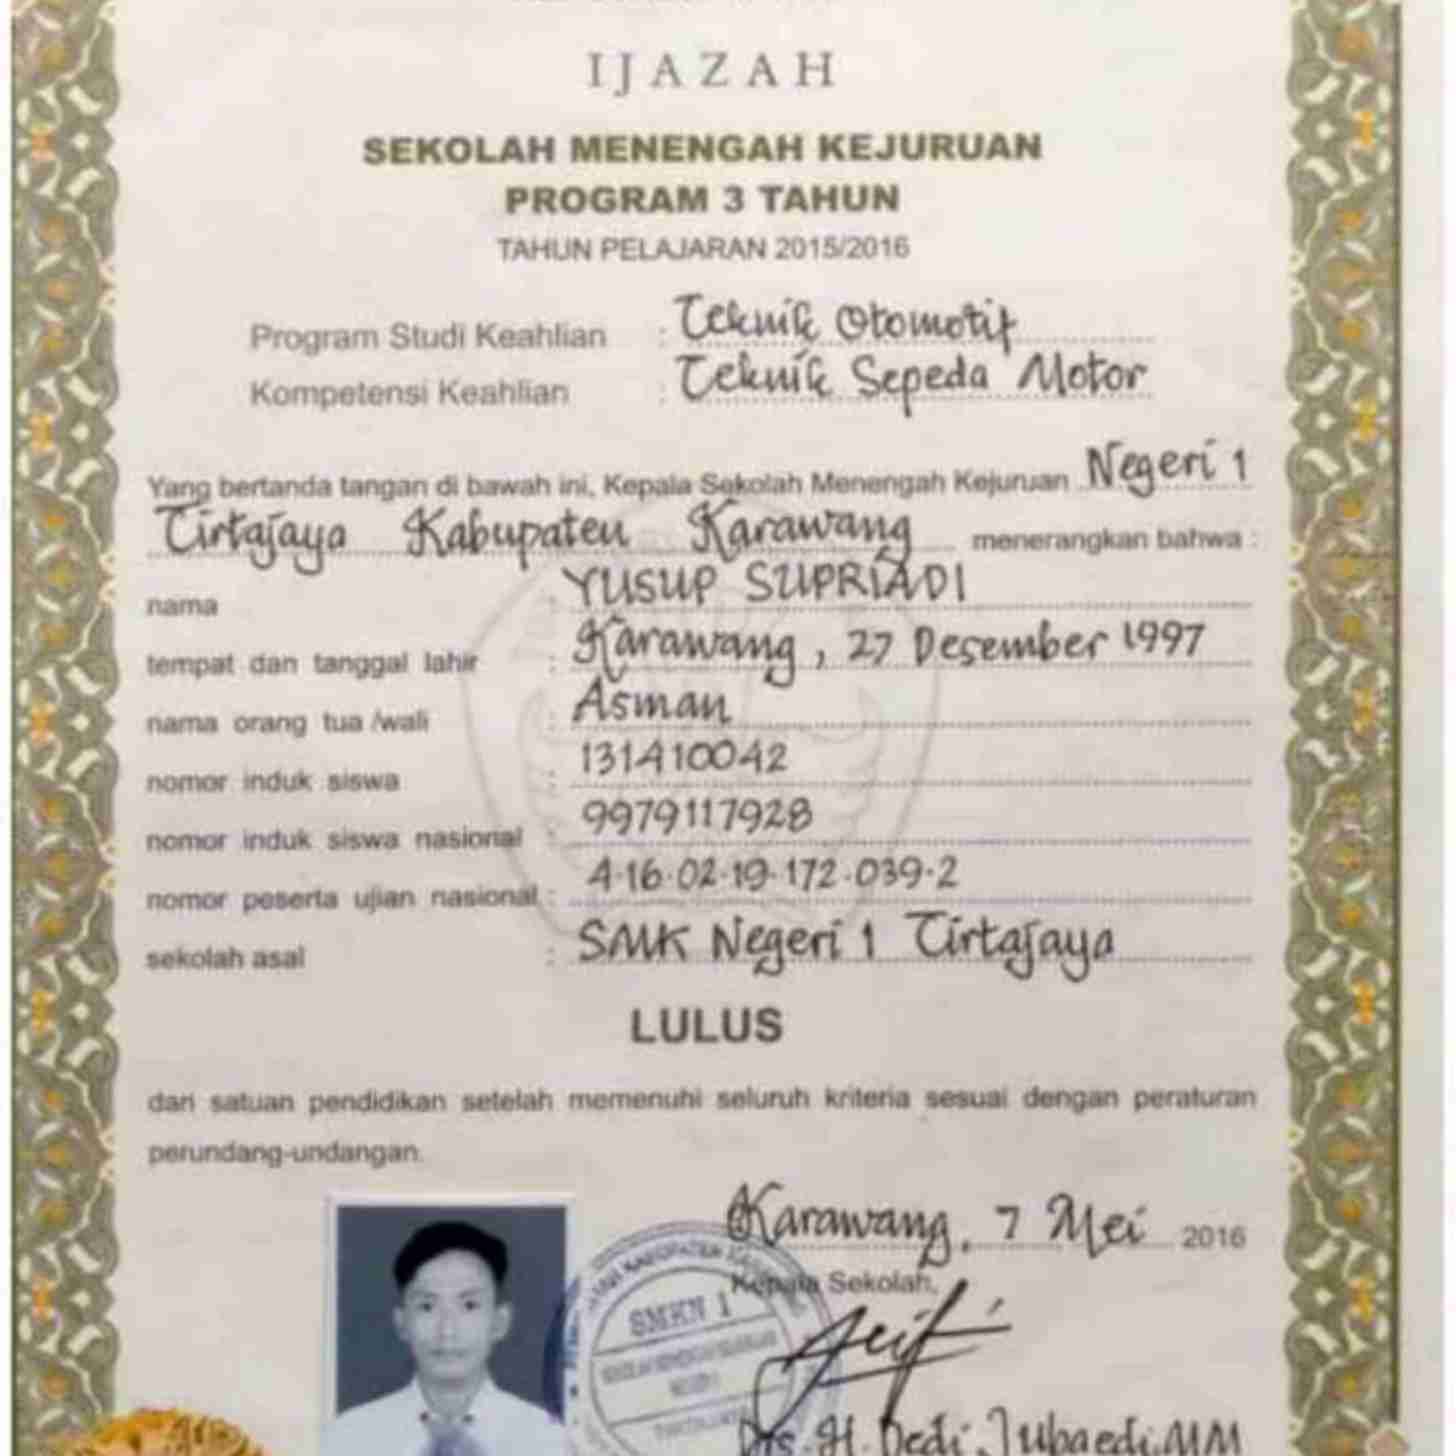 IJAZAH
SEKOLAH MENENGAH KEJURUAN
PROGRAM 3 TAHUN
TAHUN PELAJARAN 2015/2016
Program Studi Keahlian : Teknik Otomotif
Kompetensi Keahlian : Teknik Sepeda Motor
Yang bertanda tangan di bawah ini, Kepala Sekolah Menengah Kejuruan Negeri 1
Tirtajaya Kabupaten Karawang menerangkan bahwa :
nama : YUSUP SUPRIADI
tempat dan tanggal lahir : Karawang, 27 Desember 1997
nama orang tua /wali : Asman
nomor induk siswa : 131410042
nomor induk siswa nasional : 9979117928
nomor peserta ujian nasional : 4-16-02-19-172-039-2
sekolah asal : SMK Negeri 1 Tirtajaya
LULUS
dari satuan pendidikan setelah memenuhi seluruh kriteria sesuai dengan peraturan
perundang-undangan.
Karawang, 7 Mei 2016
Kepala Sekolah,
SMKN 1
Drs. H. Dedi Jubaedi, MM